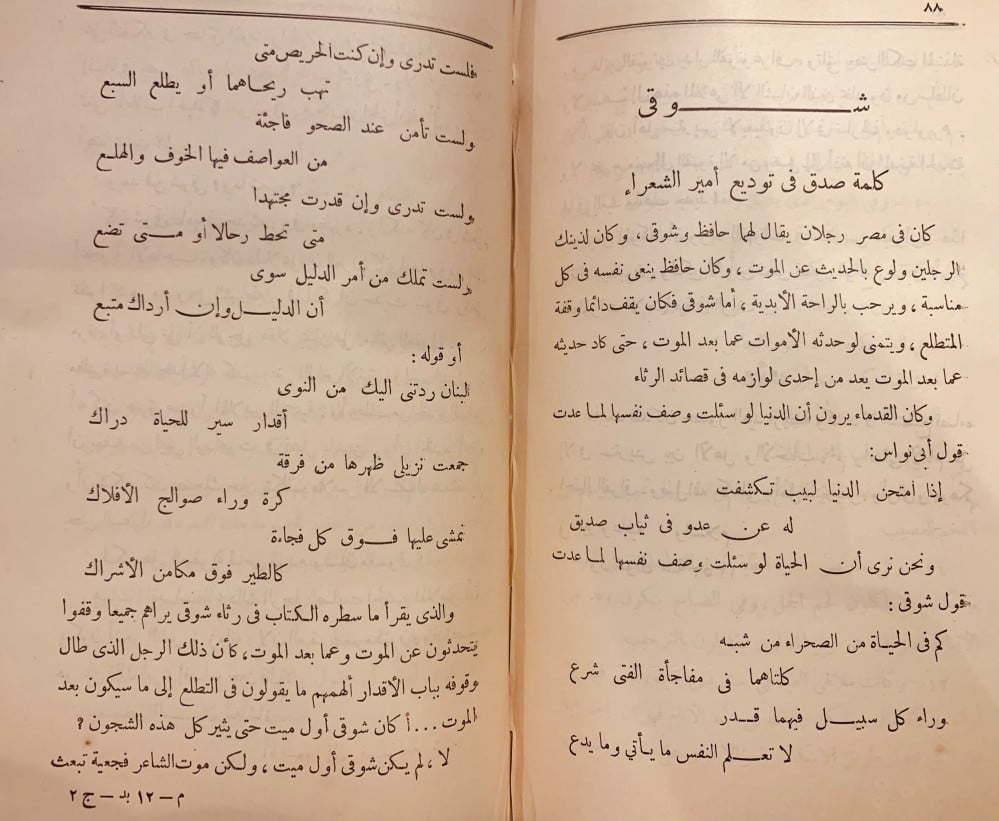 ٨٨
شـوقى
كلمة صدق فى توديع أمير الشعراء
كان فى مصر رجلان يقال لهما حافظ وشوقى، وكان لذينك
الرجلين ولوع بالحديث عن الموت، وكان حافظ ينعى نفسه فى كل
مناسبة، ويرحب بالراحة الأبدية، أما شوقى فكان يقف دائما وقفة
المتطلع، ويتمنى لو حدثه الأموات عما بعد الموت، حتى كاد حديثه
عما بعد الموت يعد من إحدى لوازمه فى قصائد الرثاء
وكان القدماء يرون أن الدنيا لو سئلت وصف نفسها لما عدت
قول أبى نواس:
إذا امتحن الدنيا لبيب تكشفت
له عن عدو فى ثياب صديق
ونحن نرى أن الحياة لو سئلت وصف نفسها لما عدت
قول شوقى:
كم فى الحياة من الصحراء من شبه
كلتاهما فى مفاجأة الفتى شرع
وراء كل سبيل فيهما قدر
لا تعلم النفس ما يأتي وما يدع
فلست تدرى وإن كنت الحريص متى
تهب ريحاهما أو يطلع السبع
ولست تأمن عند الصحو فاجئة
من العواصف فيها الخوف والهلع
ولست تدرى وإن قدرت مجتهدا
متى تحط رحالا أو متى تضع
ولست تملك من أمر الدليل سوى
أن الدليل وإن أرداك متبع
أو قوله:
لبنان ردتنى اليك من النوى
أقدار سير للحياة دراك
جمعت نزيلى ظهرها من فرقة
كرة وراء صوالج الأفلاك
نمشى عليها فوق كل فجاءة
كالطير فوق مكامن الأشراك
والذى يقرأ ما سطره الكتاب فى رثاء شوقى يراهم جميعا وقفوا
يتحدثون عن الموت وعما بعد الموت، كأن ذلك الرجل الذى طال
وقوفه بباب الأقدار ألهمهم ما يقولون فى التطلع إلى ما سيكون بعد
الموت... أ كان شوقى أول ميت حتى يثير كل هذه الشجون؟
لا، لم يكن شوقى أول ميت، ولكن موت الشاعر فجعية تبعث
م — ١٢ بد — ج ٢